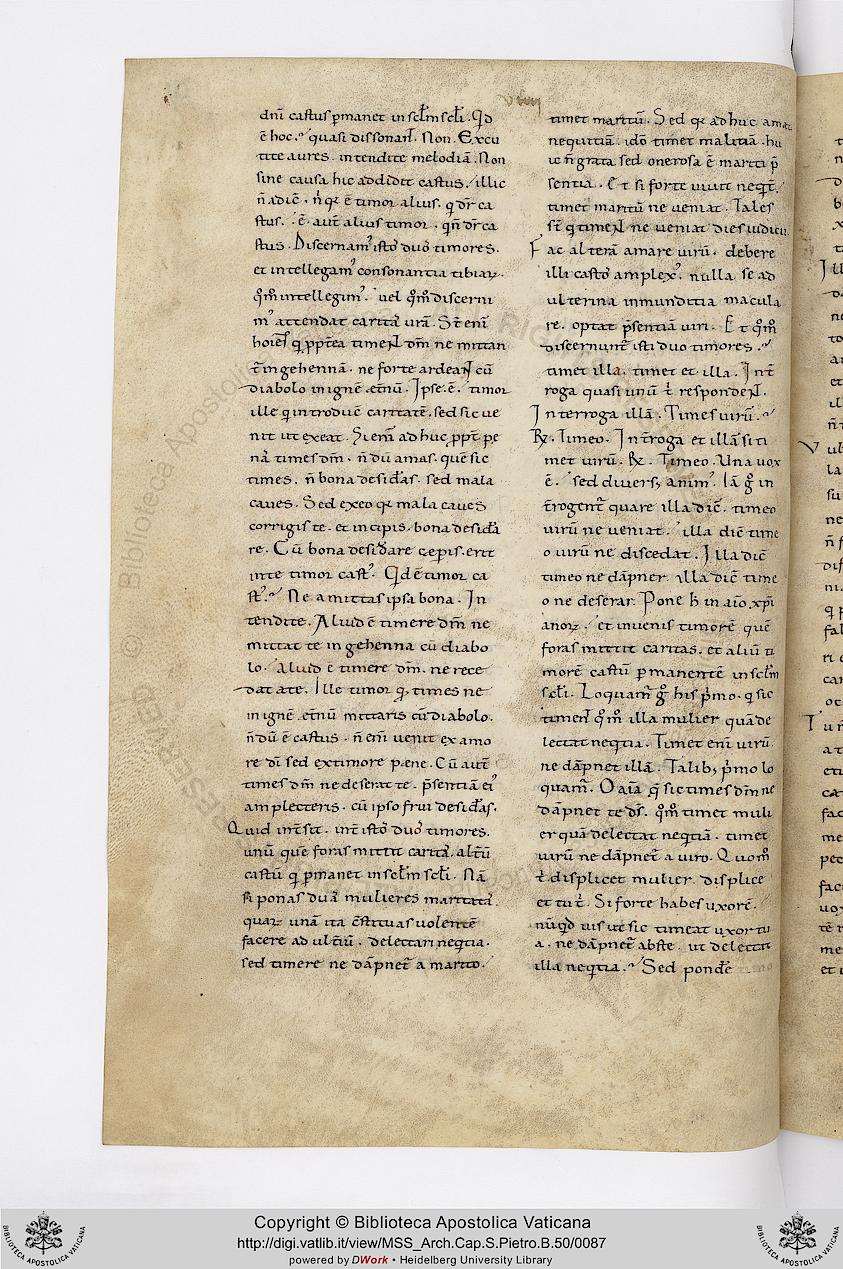 dnī castus ꝑmanet in sclm̄ scl̄i. Qd
ē hoc. quasi dissonant̄. Non. Excu
tite aures. intendite melodiā. Non
sine causa hic addidit castus. illic
n̄ adiē. n̄ qꝛ ē timor alius. q dr̄ ca
stus. ē aut̄ alius timor. q n̄ dr̄ ca
stus. Discernam' istos duos timores.
et intellegam' consonantia tibiaꝝ.
qm̄ intellegim'. uel qm̄ discerni
m' attendat caritas urā. St̄ eni
hoīes q ꝓptea timent dm̄ ne mittan
t̄ in gehennā. ne forte ardeant cū
diabolo in ignē etnū. Ipse ē timor
ille q introduc̄ caritatē. sed sic ue
nit ut exeat. Si enī adhuc ꝓpt̄ pe
nas times dm̄. n̄ dū amas. quē sic
times. n̄ bona desid̄as. sed mala
caues. Sed ex eo qꝛ mala caues
corrigis te. et incipis bona desid̄a
re. Cū bona desid̄are cęperis. erit
in te timor cast'. Qd ē timor ca
st'. Ne amittas ipsa bona. In
tendite. Aliud ē timere dm̄ ne
mittat te in gehenna cū diabo
lo. Aliud ē timere dm̄. ne rece
dat a te. Ille timor q times ne
in ignē etnū mittaris cū diabolo.
n̄ dū ē castus. n̄ enī uenit ex amo
re dī sed ex timore pęne. Cū aut̄
times dm̄ ne deserat te. p̄sentiā ei'
amplecteris. cū ipso frui desid̄as.
Quid int̄sit. int̄ istos duos timores.
unū quē foras mittit caritas. alt̄ū
castū q ꝑmanet in sclm̄ scl̄i. Nā
si ponas duas mulieres maritatas.
quaꝝ unā ita c̄stituas uolentē
facere adult̄iū. delectari neq̄tia.
sed timere ne dāpnet̄ a marito.
timet maritū. Sed qꝛ adhuc amat
nequitiā. ideo timet malitiā. hu
ic n̄ grata sed onerosa ē mariti p̄
sentia. Et si forte uiuit neqt̄.
timet maritū ne ueniat. Tales
st̄ q timent ne ueniat dies iudicii.
Fac alterā amare uirū. debere
illi castos amplex'. nulla se ad
ulterina inmunditia macula
re. optat p̄sentiā uiri. Et qm̄
discernunt̄ isti duo timores.
timet illa. timet et illa. Int̄
roga quasi unū t̄ respondent.
Interroga illā. Times uirū.
R̄. Timeo. Int̄roga et illā si ti
met uirū. R̄. Timeo. Una uox
ē. sed diuers; anim'. Iā g̊ in
t̄rogent̄ quare illa diē. timeo
uirū ne ueniat. illa diē time
o uirū ne discedat. Illa diē
timeo ne dāpner. illa diē time
o ne deserar. Pone h̄ in aīo xp̄i
anoꝝ. et inuenis timorē quē
foras mittit caritas. et aliū ti
morē castū ꝑmanentē in sclm̄
scl̄i. Loquam' g̊ his p̄mo. q sic
timent qm̄ illa mulier quā de
lectat neq̄tia. Timet enī uirū
ne dāpnet illā. Talib; p̄mo lo
quam'. O aīa q̄ sic times dm̄ ne
dāpnet te ds̄. qm̄ timet muli
er quā delectat neq̄tiā. timet
uirū ne dāpnet̄ a uiro. Quom̊
t̄ displicet mulier. displice
et tu t̄. Si forte habes uxorē.
nūqd uis ut sic timeat uxor tu
a. ne dāpnet̄ abs te. ut delectat
illa neq̄tia. Sed pond̄e
Copyright © Biblioteca Apostolica Vaticana
http://digi.vatlib.it/view/MSS_Arch.Cap.S.Pietro.B.50/0087
powered by DWork • Heidelberg University Library